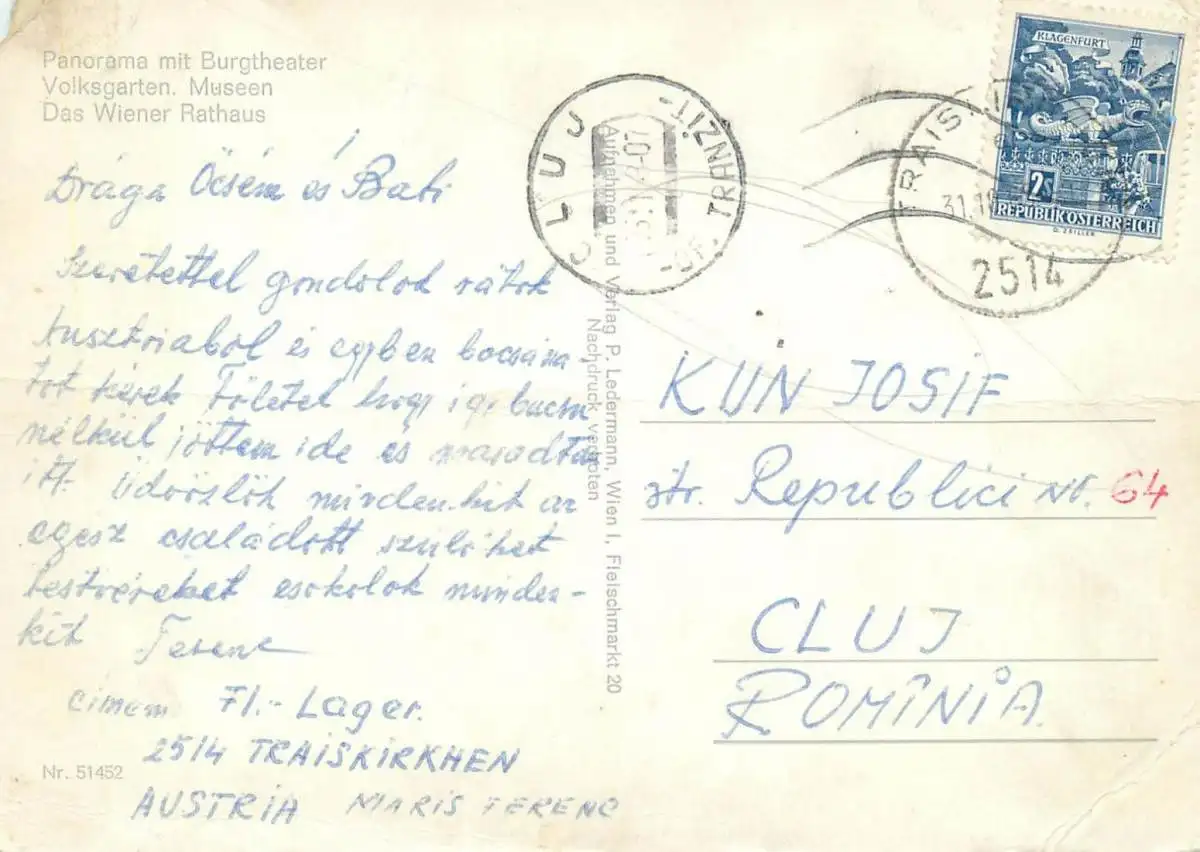 Panorama mit Burgtheater
Volksgarten. Museen
Das Wiener Rathaus
Drága Öcsém és Bati
Szeretettel gondolod rátok
Ausztriabol és egyben bocsána
tot kérek Tőletek hogy igy bucsu
nélkül jöttem ide es maradtam
itt. Üdvözlök mindenkit az
egesz családott szülöket
testvéreket csokolok minden-
kit Ferenc
cimem Fl.- Lager.
2514 TRAISKIRKHEN
AUSTRIA MARIS FERENC
Nr. 51452
Aufnahmen und Verlag P. Ledermann, Wien I, Fleischmarkt 20
Nachdruck verboten
CLUJ
-OF. TRANZIT-
TRAISK
31.1
2514
KLAGENFURT
2s
REPUBLIK ÖSTERREICH
KUN JOSIF
str. Republici nr. 64
CLUJ
ROMÎNIA